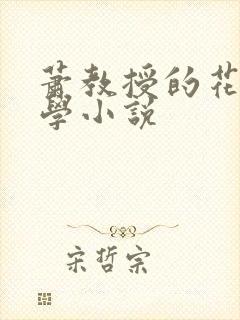 蕭教授的花
學小説
宋哲宗